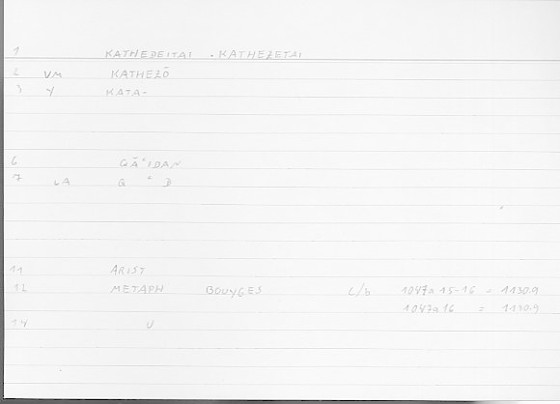 1 KATHEDEITAI . KATHEZETAI
2 VM KATHEZŌ
3 Y KATA-
6 GĀʿIDAN
7 LA G ʿ D
11 ARIST
12 METAPH BOUYGES L/b 1047a 15-16 = 1130.9
1047a16 = 1130.9
14 U